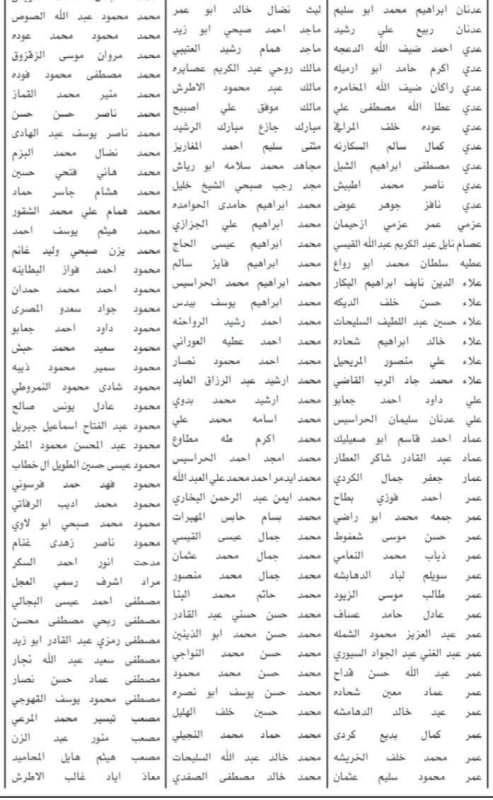 عدنان ابراهيم محمد ابو سليم
عدنان ربيع علي رشيد
عدي احمد ضيف الله الدعجه
عدي اكرم حامد ابو ارميله
عدي راكان ضيف الله المخامره
عدي عطا الله مصطفى علي
عدي عوده خلف المرافي
عدي كمال سالم السكارنه
عدي مصطفى ابراهيم الشبل
عدي ناصر محمد اطبيش
عدي نافز جوهر عوض
عزمي عمر عزمي ازحيمان
عصام نايل عبد الكريم عبدالله القيسي
عطيه سلطان محمد ابو رواع
علاء الدين نايف ابراهيم البكار
علاء حسن خلف الديكه
علاء حسين عبد اللطيف السليحات
علاء خالد ابراهيم شحاده
علاء علي منصور المريحيل
علاء محمد جاد الرب القاضي
علي داود احمد جعابو
علي عدنان سليمان الحراسيس
عماد احمد قاسم ابو صعيليك
عماد عبد القادر شاكر العطار
عمار جعفر جمال الكردي
عمر احمد فوزي بطاح
عمر جمعه محمد ابو راضي
عمر حسن موسى شعفوط
عمر ذياب محمد النعامي
عمر سويلم لباد الدهابشه
عمر طالب موسي الزيود
عمر عادل حامد عساف
عمر عبد العزيز محمود الشمله
عمر عبد الغني عبد الجواد السيوري
عمر عبد الله حسن قداح
عمر عماد معين شحاده
عمر عيد خالد الدهامشه
عمر كمال بديع كردى
عمر محمد خلف الخريشه
عمر محمود سليم عثمان
ليث نضال خالد ابو عمر
ماجد احمد صبحي ابو زيد
ماجد همام رشيد العتيبي
مالك روحي عبد الكريم عصايره
مالك عبد محمود الاطرش
مالك موفق علي اصبيح
مبارك جازع مبارك الرشيد
مثنى سليم احمد المغاريز
مجاهد محمد سلامه ابو رياش
مجد رجب صبحي الشيخ خليل
محمد ابراهيم حامدى الحوامده
محمد ابراهيم علي الجزازي
محمد ابراهيم عيسى الحاج
محمد ابراهيم فايز سالم
محمد ابراهيم محمد الحراسيس
محمد ابراهيم يوسف بيدس
محمد احمد رشيد الرواحنه
محمد احمد عطيه العوراني
محمد احمد محمود نصار
محمد ارشيد عبد الرزاق العايد
محمد ارشيد محمد بدوي
محمد اسامه محمد علي
محمد اكرم طه مطاوع
محمد امجد احمد الحراسيس
محمد ايدمر احمد محمد علي العبد الله
محمد ايمن عبد الرحمن البخاري
محمد بسام حابس المهيرات
محمد جمال عيسى القيسي
محمد جمال محمد عثمان
محمد جمال محمد منصور
محمد حاتم محمد البنا
محمد حسن حسني عبد القادر
محمد حسن محمد ابو الذينين
محمد حسن محمد النواجي
محمد حسن محمد محمود
محمد حسن يوسف ابو نصره
محمد حسين خلف الهليل
محمد حماد محمد النجيلي
محمد خالد عبد الله السليحات
محمد خالد مصطفى الصفدي
محمد محمود عبد الله الصوص
محمد محمود محمد عوده
محمد مروان موسى الزقزوق
محمد مصطفى محمود فوده
محمد منير محمد القماز
محمد ناصر حسن حسن
محمد ناصر يوسف عبد الهادى
محمد نضال محمد البزم
محمد هاني فتحي حسين
محمد هشام جاسر حماد
محمد همام علي محمد الشقور
محمد هيثم يوسف احمد
محمد يزن صبحي وليد غانم
محمود احمد فواز البطاينه
محمود احمد محمد حمدان
محمود جواد سعدو المصرى
محمود داود احمد جعابو
محمود سعيد محمد حبش
محمود سمير محمود ذيبه
محمود شادى محمود النمروطي
محمود عادل يونس صالح
محمود عبد الفتاح اسماعيل جبريل
محمود عبد المحسن محمود المطر
محمود عيسى حسين الطويل ال خطاب
محمود فهد حمد فرسوني
محمود محمد اديب الرفاتي
محمود محمد صبحي ابو لاوي
محمود ناصر زهدى غنام
مدحت انور احمد السكر
مراد اشرف رسمي العجل
مصطفى احمد عيسى البجالي
مصطفى ربحي مصطفى محسن
مصطفى رمزي عبد القادر ابو زيد
مصطفى سعيد عبد الله نجار
مصطفى عماد حسن نصار
مصطفى محمود يوسف القهوجي
مصعب تيسير محمد المرعي
مصعب منور عيد الزن
مصعب هيثم هايل المحاميد
معاذ اياد غالب الاطرش